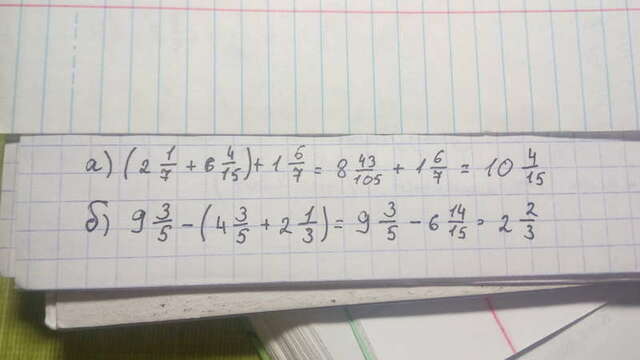 а) (2 1/7 + 6 4/15) + 1 6/7 = 8 43/105 + 1 6/7 = 10 4/15
б) 9 3/5 - (4 3/5 + 2 1/3) = 9 3/5 - 6 14/15 = 2 2/3